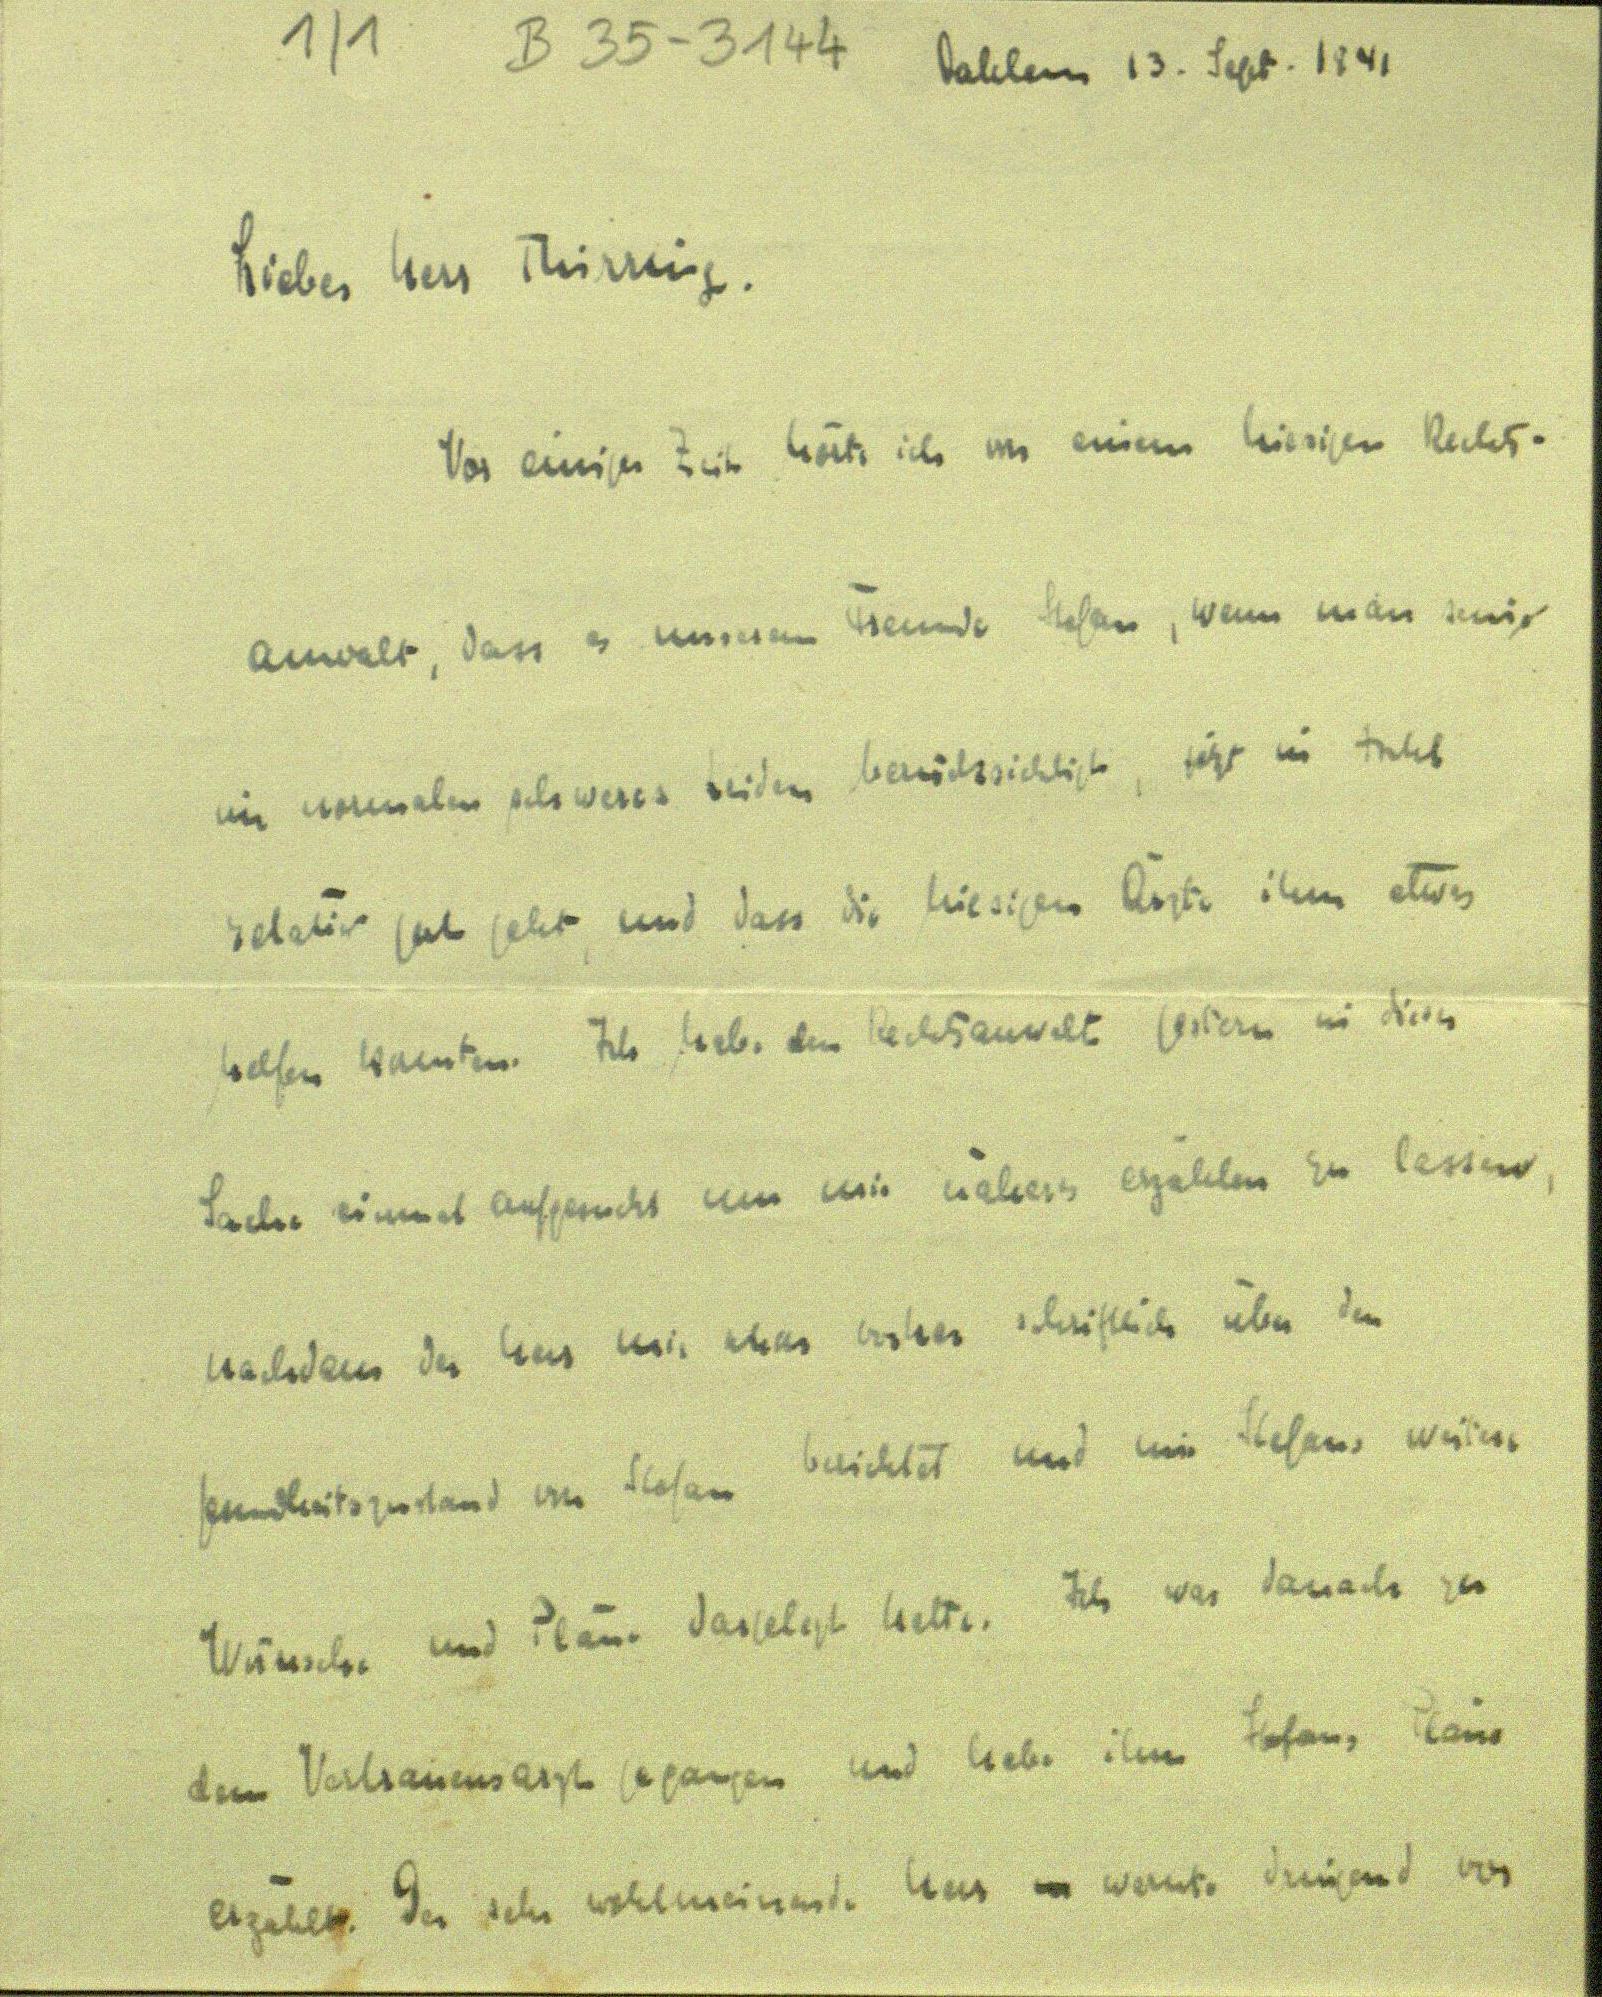 1/1 B 35-3144 Dahlem 13. Sept. 1941
Lieber Herr Thirring.
Vor einiger Zeit hörte ich von einem hiesigen Rechts-
anwalt, dass es unserem Freunde Stefan, wenn man sein
im normalen schweres Leiden berücksichtigt, jetzt
relativ gut geht, und dass die hiesigen Ärzte ihm etwas
helfen konnten. Ich habe den Rechtsanwalt gestern in dieser
Sache einmal aufgesucht um mir näheres erzählen zu lassen,
nachdem der Herr mir etwas vorher schriftlich über den
Gesundheitszustand von Stefan berichtet und mir Stefans weitere
Wünsche und Pläne dargelegt hatte. Ich war danach zu
dem Vertrauensarzt gegangen und habe ihm Stefans Pläne
erzählt. Der sehr wohlmeinende Herr warnte dringend vor